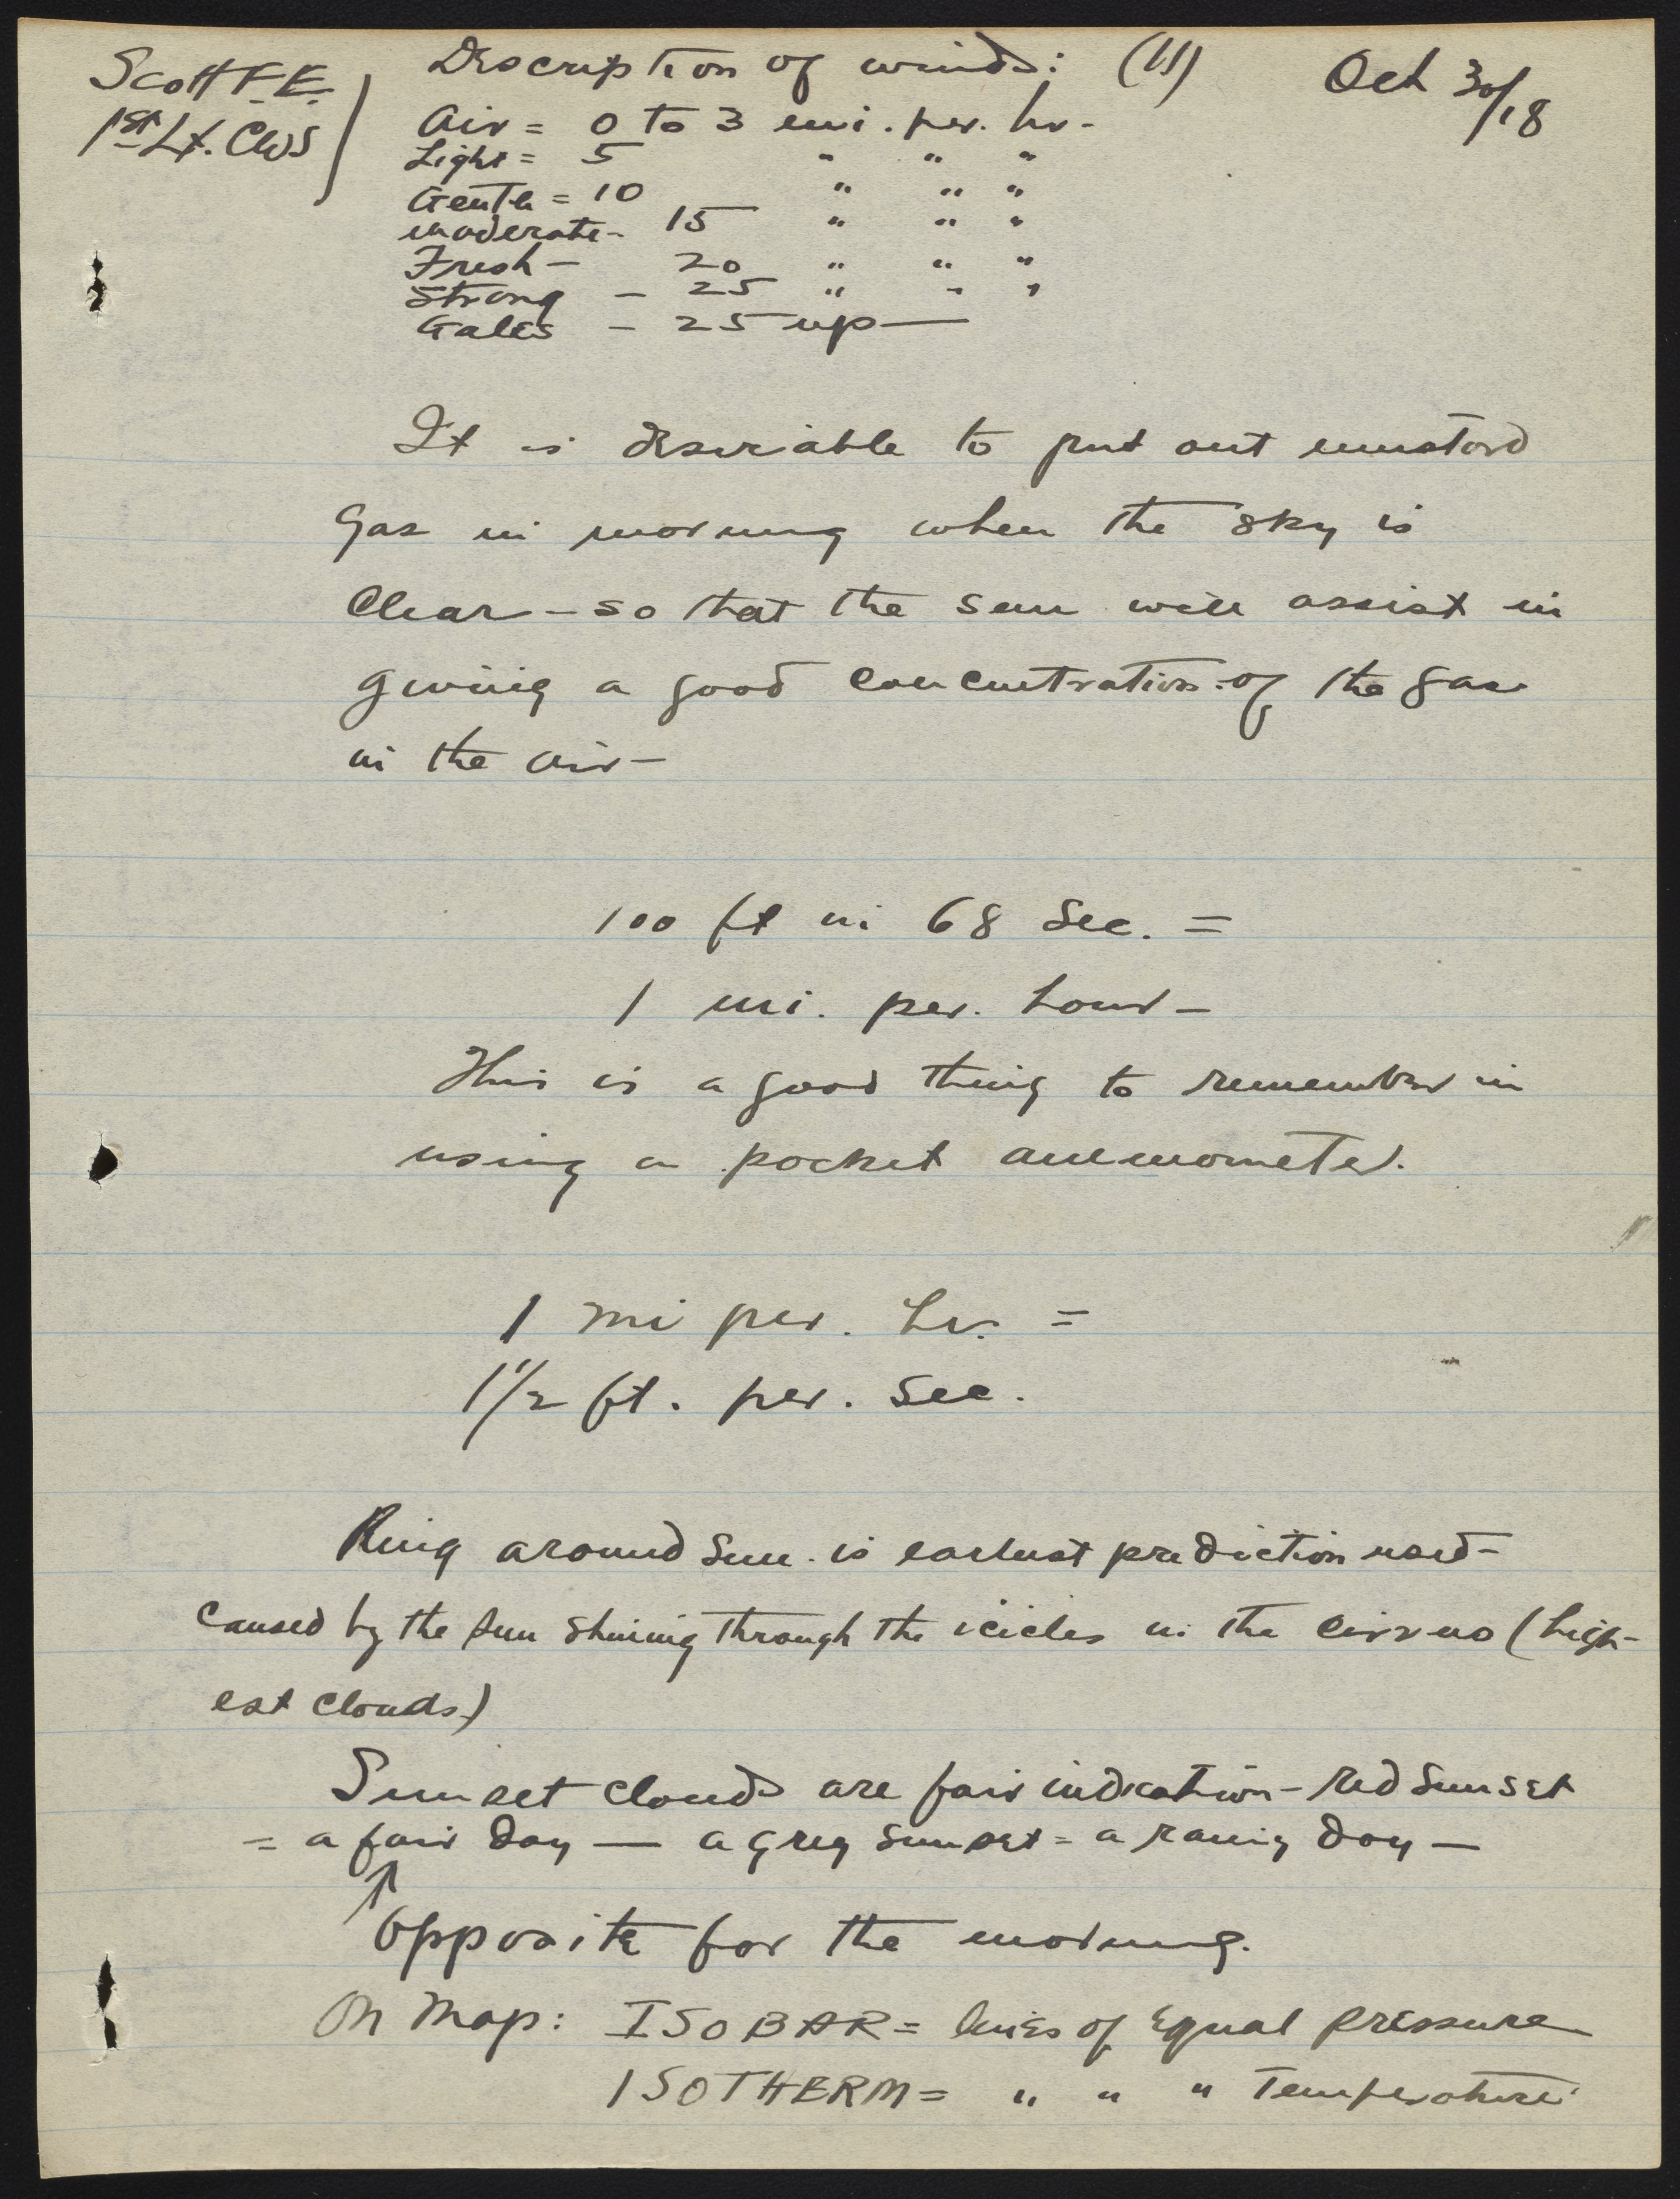 Scott F. E.
1st Lt. CWS
Description of winds: (11)
Oct 30/18
Air = 0 to 3 mi. per. hr-
Light = 5 " " "
Gentle = 10 " " "
moderate - 15 " " "
Fresh - 20 " " "
Strong - 25 " " "
Gales - 25 up —
It is desirable to put out mustard
gas in morning when the sky is
Clear - so that the sun will assist in
giving a good concentration of the gas
in the air -
100 ft in 68 Sec. =
1 mi. per. hour -
This is a good thing to remember in
using a pocket anemometer.
1 mi per. hr. =
1 1/2 ft. per. Sec.
Ring around Sun is earliest prediction used -
Caused by the sun shining through the icicles in the cirrus (high-
est clouds)
Sunset clouds are fair indication - Red Sunset
= a fair day — a grey sunset = a rainy day —
↑
Opposite for the morning.
On Map: ISOBAR = lines of Equal Pressure
ISOTHERM = " " " Temperature